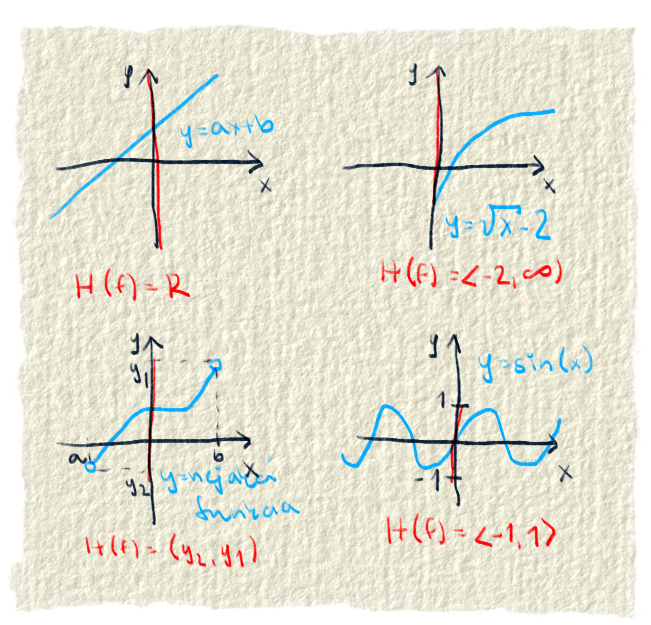 y
y=ax+b
x
H(f)=R
y
x
y=√x-2
H(f)=<-2,∞)
y
y₁
a
b
x
y₂
y=nějaká
funkce
H(f)=(y₂,y₁)
y
y=sin(x)
1
x
-1
H(f)=<-1,1>